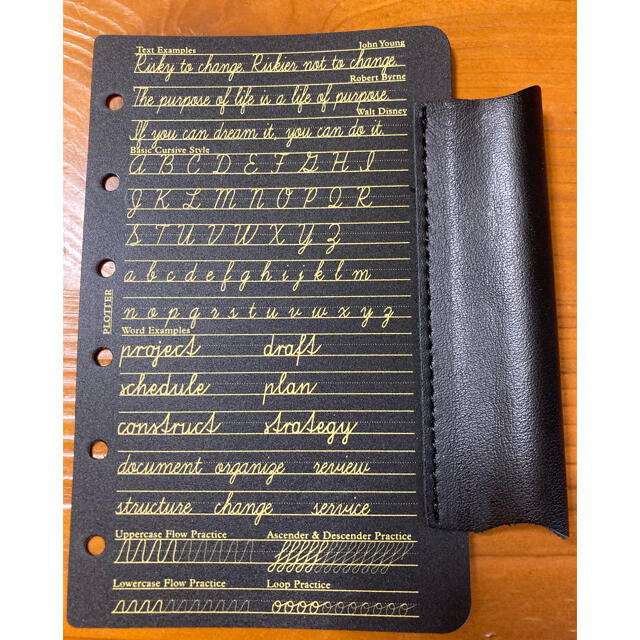 Text Examples John Young
Risky to change, Riskier not to change.
Robert Byrne
The purpose of life is a life of purpose.
Walt Disney
If you can dream it, you can do it.
Basic Cursive Style
A B C D E F G H I
J K L M N O P Q R
S T U V W X Y Z
a b c d e f g h i j k l m
n o p q r s t u v w x y z
PLOTTER
Word Examples
project draft
schedule plan
construct strategy
document organize review
structure change service
Uppercase Flow Practice Ascender & Descender Practice
Lowercase Flow Practice Loop Practice